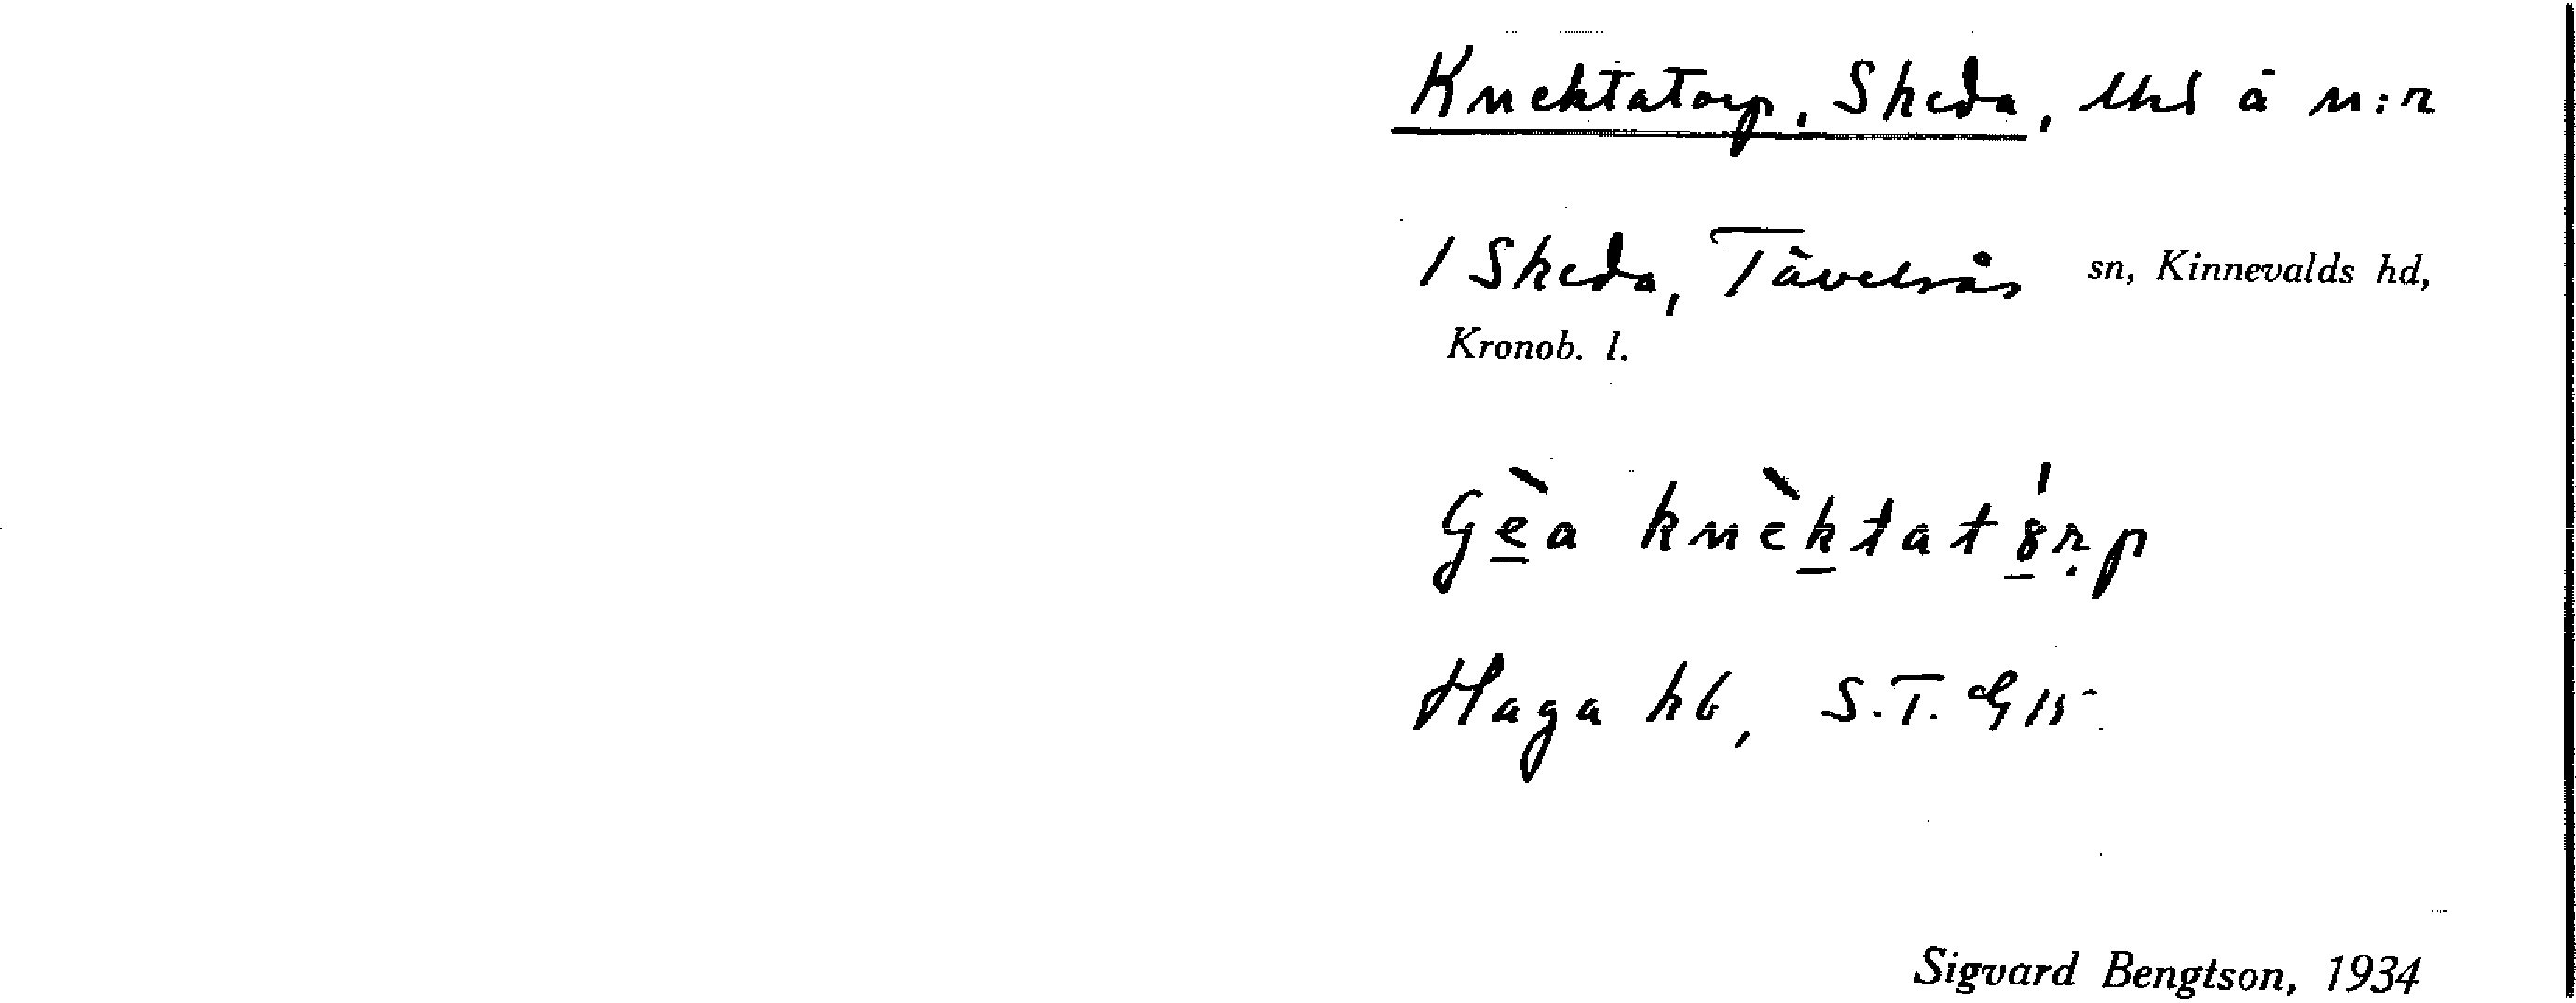 Knektatorp, Skeda, lhs å n:r
1 Skeda, Tävelsås sn, Kinnevalds hd,
Kronob. l.
Gèa knèktat8rp
Haga hb, S.T.
Sigvard Bengtson, 1934